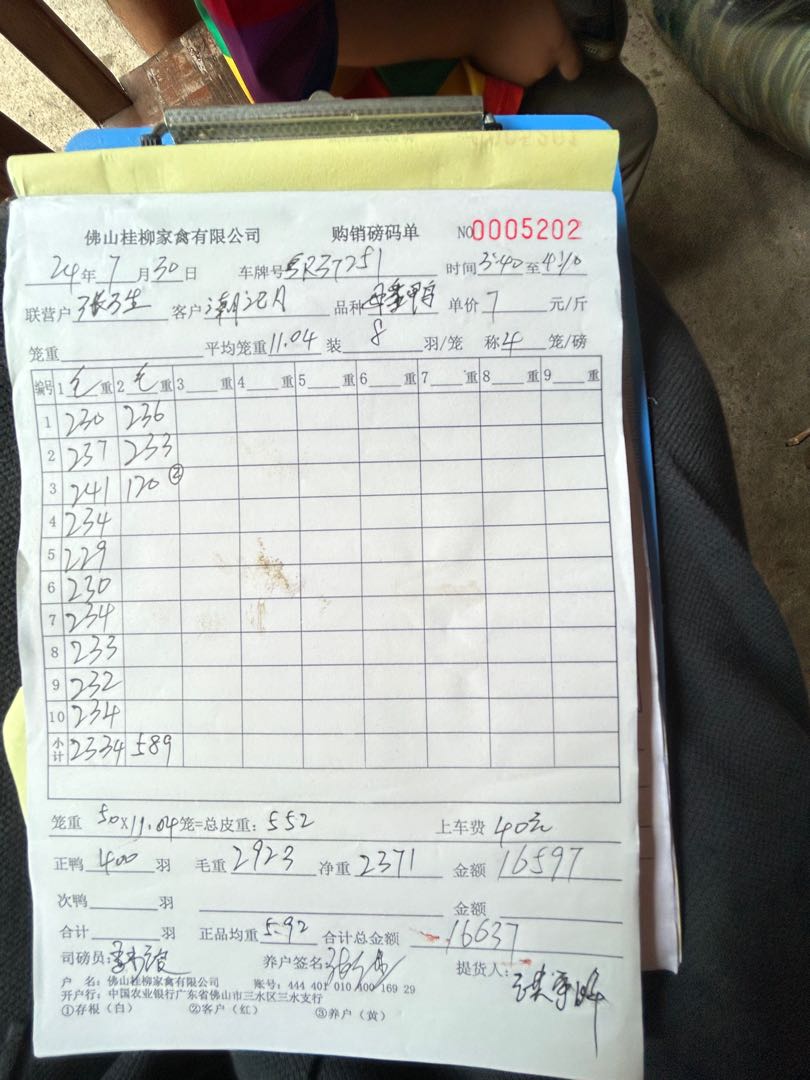 佛山桂柳家禽有限公司 购销磅码单 NO0005202
24年7月30日 车牌号 R37251 时间3:40至4:10
联营户 客户潮记 品种 鸭 单价7元/斤
笼重 平均笼重11.04装8羽/笼 称4笼/磅
编号 1毛重 2毛重 3重 4重 5重 6重 7重 8重 9重
1 230 236
2 237 233
3 241 120 ②
4 234
5 229
6 230
7 234
8 233
9 232
10 234
小计 2334 589
笼重 50×11.04笼=总皮重:552 上车费 40元
正鸭400羽 毛重2923 净重2371 金额16597
次鸭 羽 金额
合计 羽 正品均重5.92 合计总金额16637
司磅员: 养户签名: 提货人:
户 名:佛山桂柳家禽有限公司 账号:444 401 010 400 169 29
开户行:中国农业银行广东省佛山市三水区三水支行
①存根(白) ②客户(红) ③养户(黄)